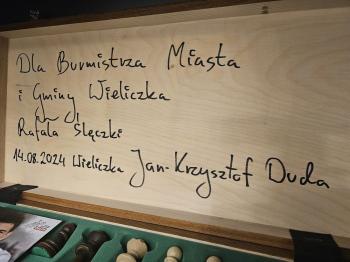 Dla Burmistrza Miasta
i Gminy Wieliczka
Rafała Ślęczki
14.08.2024 Wieliczka Jan-Krzysztof Duda